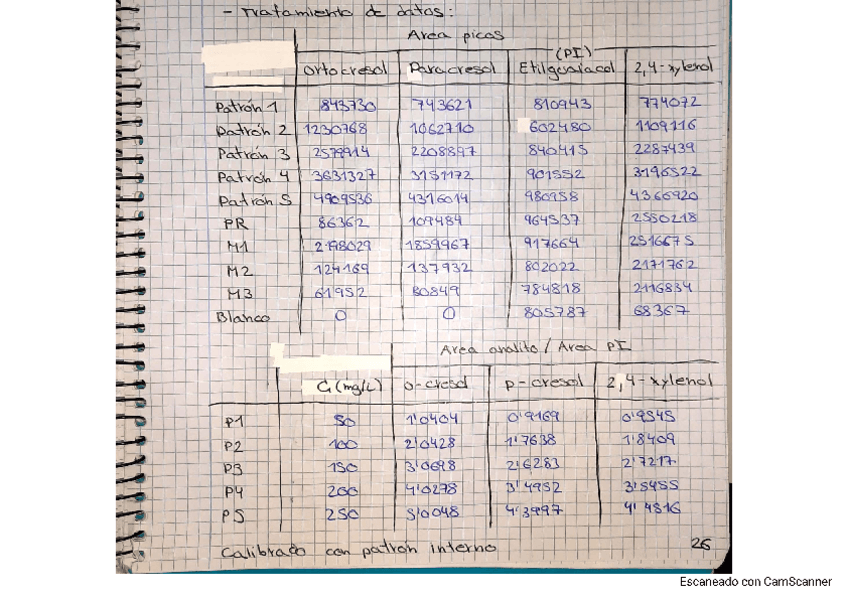 - Tratamiento de datos:
Area picos
(PI)
Ortocresol Paracresol Etilguaiacol 2,4-xylenol
Patrón 1 843730 743621 810943 774072
Patrón 2 1230768 1062710 602480 1109116
Patrón 3 2579914 2208897 840415 2287439
Patrón 4 3631327 3151172 901552 3196522
Patrón 5 4909536 4316014 980958 4366920
PR 86362 109484 964537 2550218
M1 2198029 1859967 917664 2516675
M2 124169 137932 802022 2171762
M3 61952 80849 784818 2116834
Blanco 0 0 805787 68367
Area analito / Area PI
Ci (mg/L) o-cresol p-cresol 2,4-xylenol
P1 50 1'0404 0'9169 0'9545
P2 100 2'0428 1'7638 1'8409
P3 150 3'0698 2'6283 2'7217
P4 200 4'0278 3'4952 3'5455
P5 250 5'0048 4'3997 4'4516
Calibrado con patrón interno 26
Escaneado con CamScanner